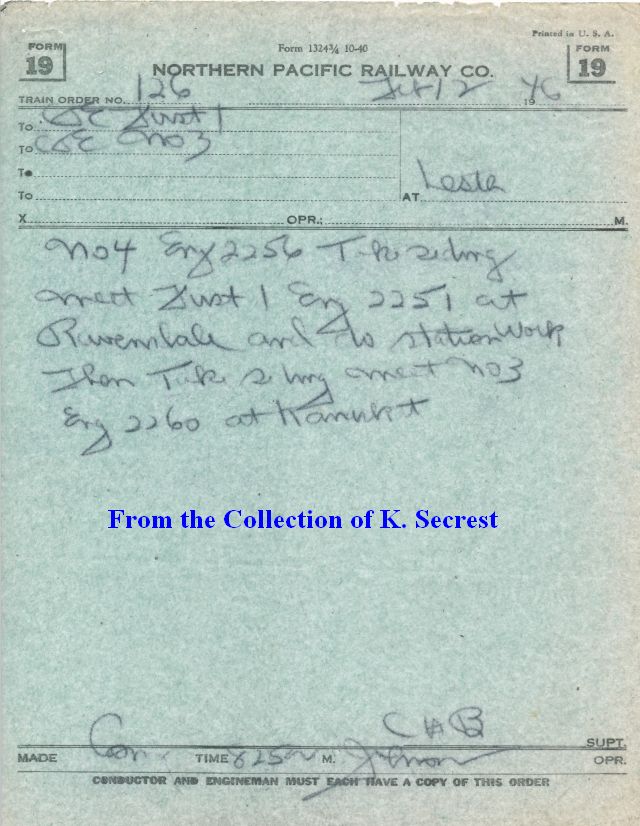 Printed in U. S. A.
FORM 19
Form 1324¾ 10-40
FORM 19
NORTHERN PACIFIC RAILWAY CO.
TRAIN ORDER NO. 126 Feb 12 19 46
To C&E First 1
To C&E No 3
To
To
AT Lester
X OPR.; M.
No 4 Eng 2256 Take siding
meet First 1 Eng 2251 at
Ravensdale and do station work
Then Take siding meet No 3
Eng 2260 at Kanaskat
From the Collection of K. Secrest
CHB
SUPT.
MADE Com TIME 825 M. Johnson OPR.
CONDUCTOR AND ENGINEMAN MUST EACH HAVE A COPY OF THIS ORDER